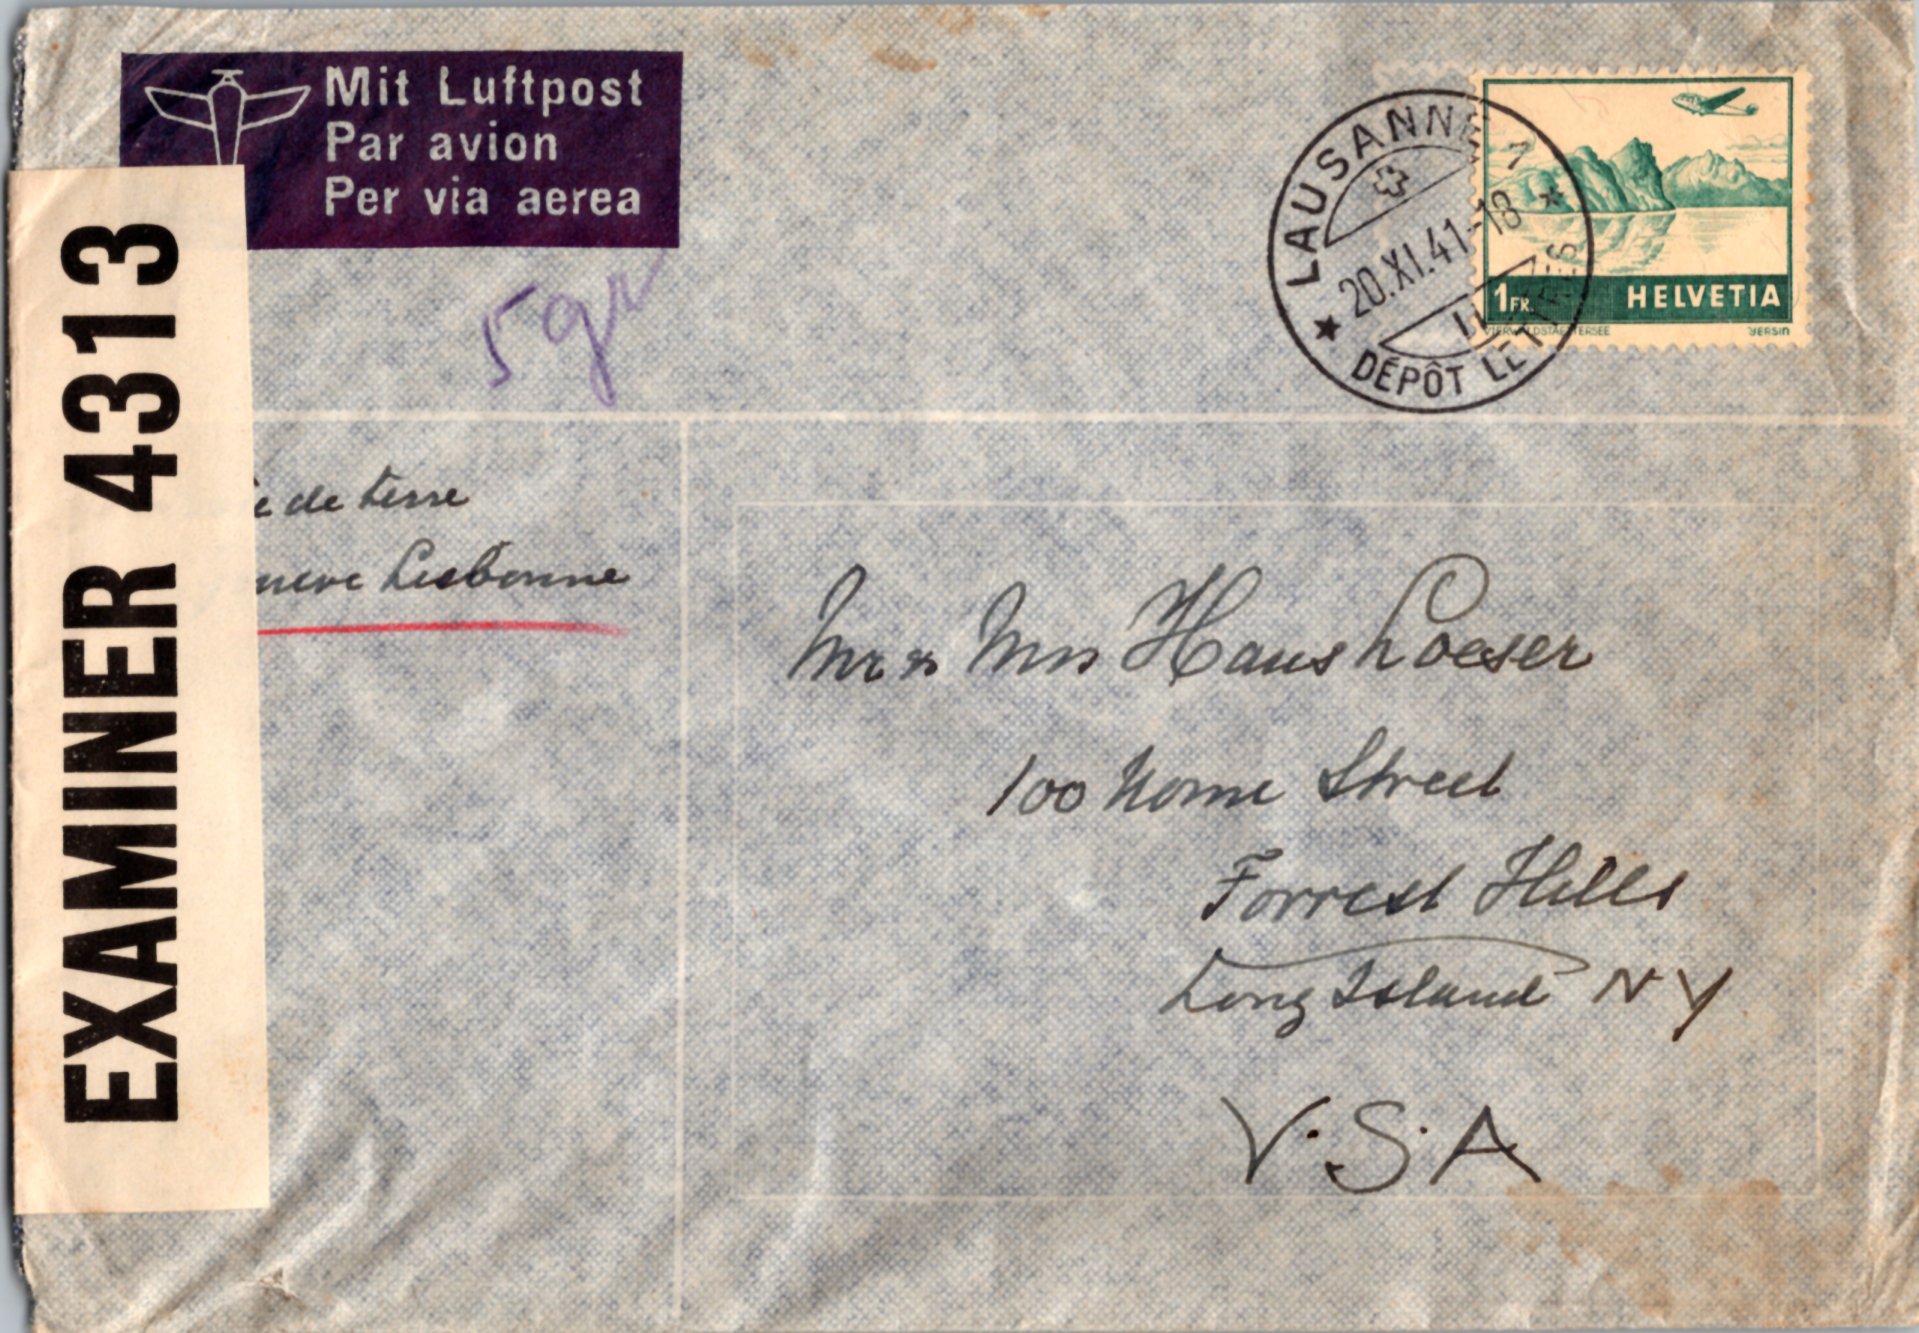 Mit Luftpost
Par avion
Per via aerea
EXAMINER 4313
5 gr
LAUSANNE 1
20.XI.41-18
DÉPÔT LETTRES
1FR. HELVETIA
VIERWALDSTAETTERSEE
de terre
Lisbonne
Mr & Mrs Hans Loeser
100 Nome Street
Forrest Hills
Long Island N Y
U.S.A